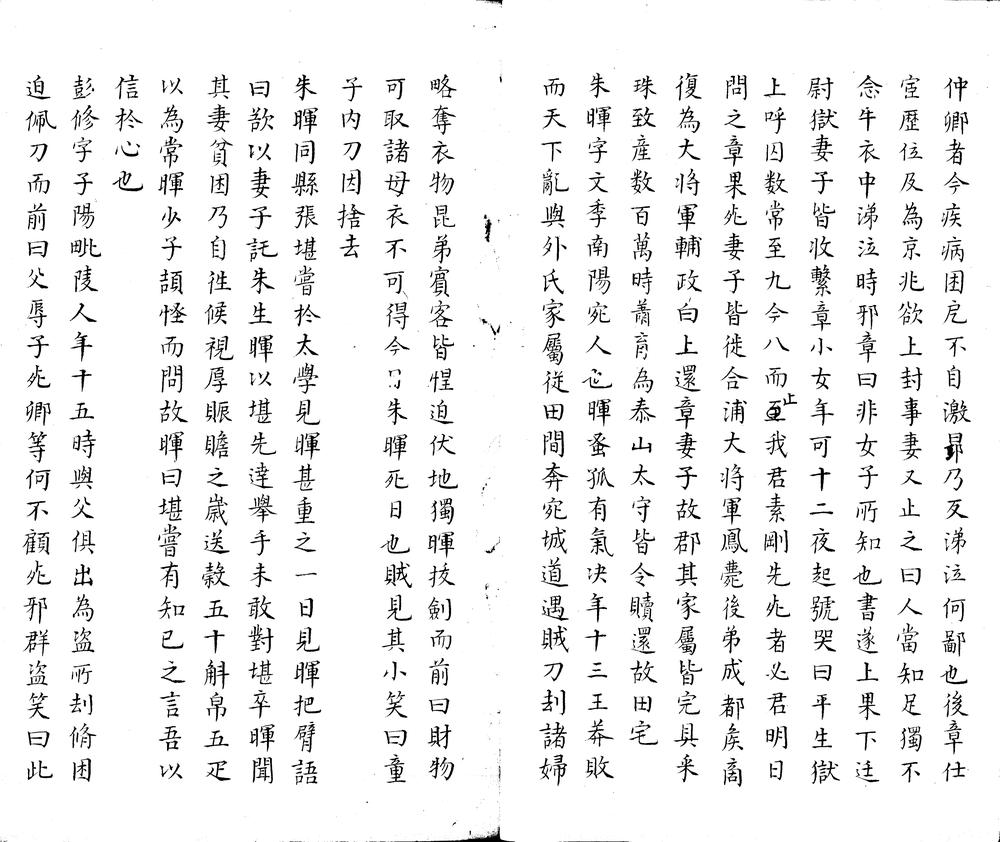 仲卿者今疾病困戹不自激昻乃反涕泣何鄙也後章仕
宦歷位及為京兆欲上封事妻又止之曰人當知足獨不
念牛衣中涕泣時邪章曰非女子所知也書遂上果下廷
尉獄妻子皆收繫章小女年可十二夜起號哭曰平生獄
上呼囚数常至九今八而止我君素剛先死者必君明日
問之章果死妻子皆徙合浦大將軍鳳薨後弟成都矦商
復為大將軍輔政白上還章妻子故郡其家屬皆完具采
珠致産数百萬時蕭育為泰山太守皆令贖還故田宅
朱暉字文季南陽宛人也暉蚤孤有氣决年十三王莽敗
而天下亂與外氏家屬從田間奔宛城道遇賊刀刦諸婦
略奪衣物昆弟賓客皆惶迫伏地獨暉拔劍而前曰財物
可取諸母衣不可得今日朱暉死日也賊見其小笑曰童
子内刀因捨去
朱暉同縣張堪嘗於太學見暉甚重之一日見暉把臂語
曰欲以妻子託朱生暉以堪先達舉手未敢對堪卒暉聞
其妻貧困乃自徃候視厚賑贍之歲送穀五十斛帛五疋
以為常暉少子頡怪而問故暉曰堪嘗有知已之言吾以
信於心也
彭修字子陽毗陵人年十五時與父俱出為盗所刦脩困
迫佩刀而前曰父辱子死卿等何不顧死邪群盗笑曰此